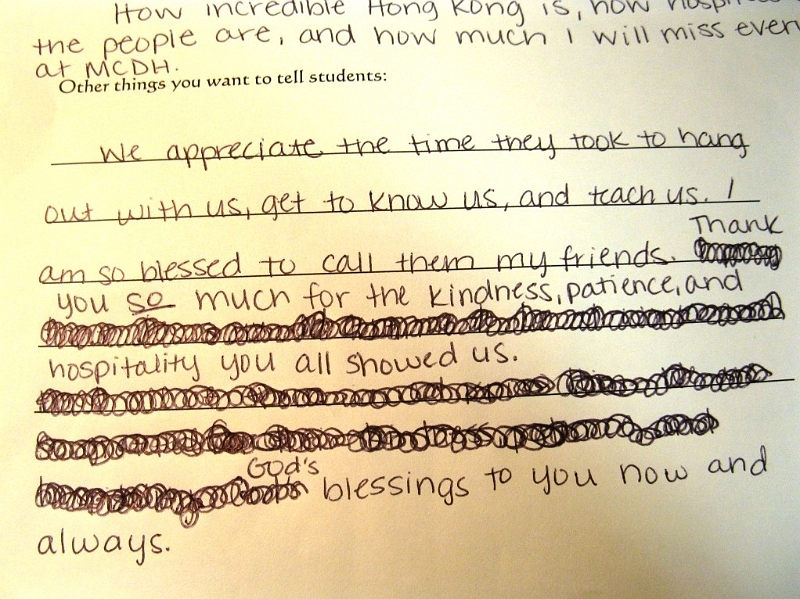 How incredible Hong Kong is, how
the people are, and how much I will miss
at MCDH.
Other things you want to tell students:
We appreciate the time they took to hang
out with us, get to know us, and teach us. I
am so blessed to call them my friends. Thank
you so much for the kindness, patience, and
hospitality you all showed us.
God's blessings to you now and
always.